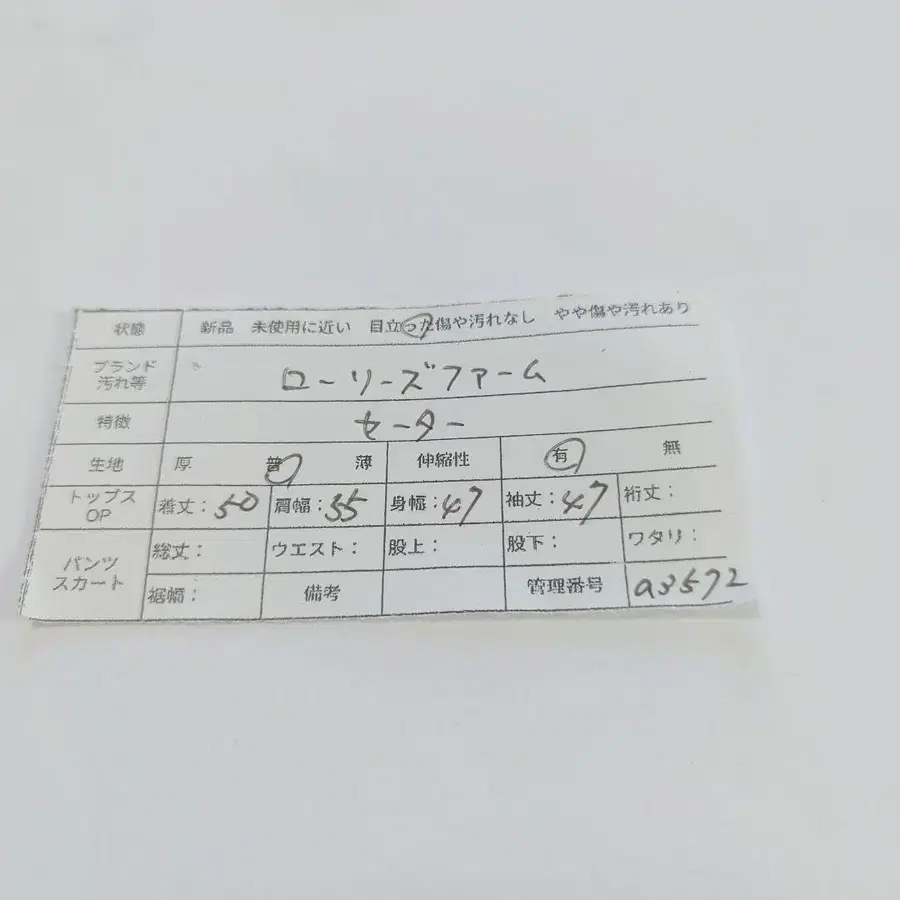 状態 新品 未使用に近い 目立った傷や汚れなし やや傷や汚れあり
ブランド
汚れ等 ローリーズファーム
特徴 セーター
生地 厚 普 薄 伸縮性 有 無
トップス
OP 着丈：50 肩幅：35 身幅：47 袖丈：47 裄丈：
パンツ
スカート 総丈： ウエスト： 股上： 股下： ワタリ：
裾幅： 備考 管理番号 a3572